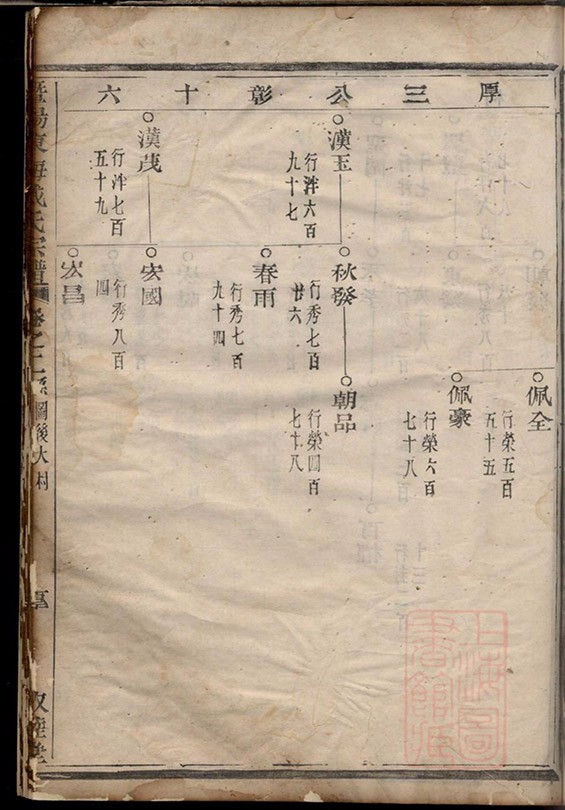 厚三公彰十六
佩全
行榮五百五十五
佩豪
行榮六百七十八
漢玉
行泮六百九十七
秋發
行秀七百廿六
朝品
行榮四百七十八
春雨
行秀七百九十四
漢茂
行泮七百五十九
宏國
行秀八百四
宏昌
暨陽東海戚氏宗譜
卷之二
系圖後大村
上海圖書館藏